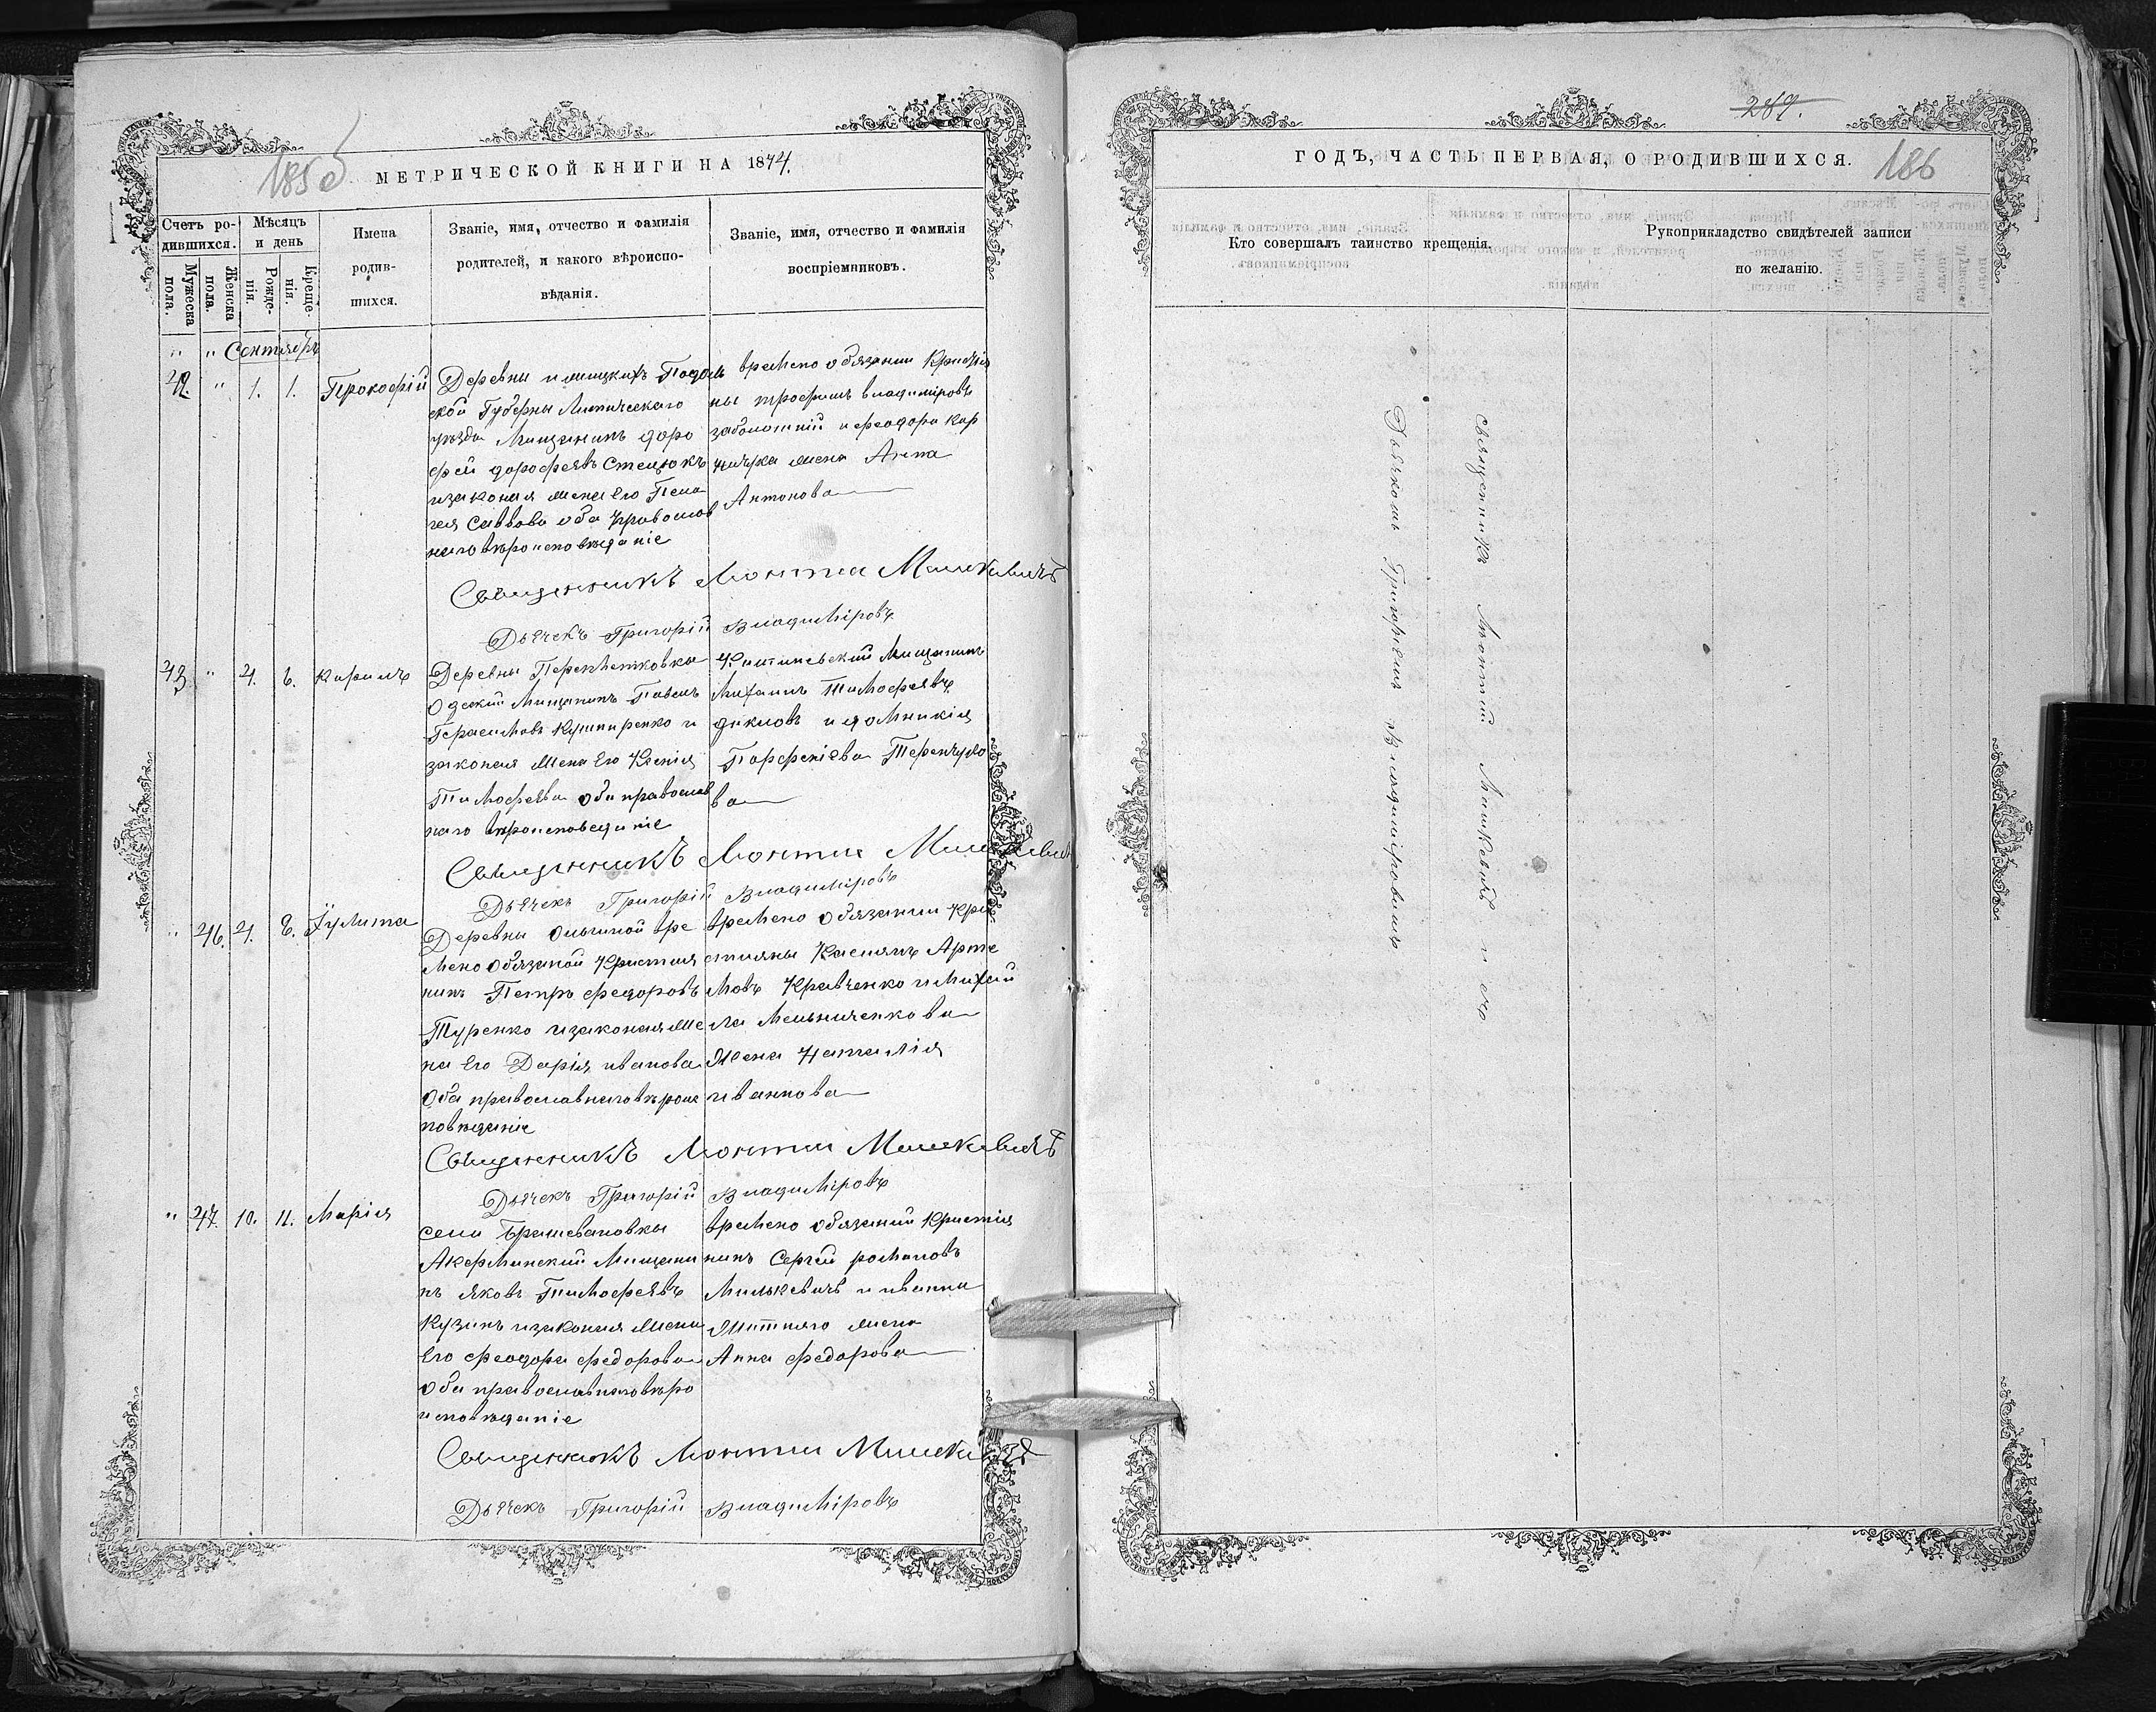 185 об
МЕТРИЧЕСКОЙ КНИГИ НА 1874.
Счетъ ро-
дившихся.
Мужеска
пола.
Женска
пола.
Мѣсяцъ
и день
Рожде-
нія.
Креще-
нія.
Имена
родив-
шихся.
Званіе, имя, отчество и фамилія
родителей, и какого вѣроиспо-
вѣданія.
Званіе, имя, отчество и фамилія
воспріемниковъ.
" " Сентябрь
" 1. 1. Прокофій
Деревны Подоль
ской Губерны
уѣзда Мищанинъ доро
фей дорофеявъ Стецюкъ
изаконая жена его Пела
гея Саввова оба православ
наго вѣроисповѣданіе
времено обязании Кристія
ны трофимъ владиміровъ
заболотній и феодора Кар
жена Анна
Антонова
Священникъ Леонтій Мишкевичъ
Дьячекъ Григорій Владиміровъ
43 " 4. 6. Кирилъ
Деревны
Одеский Мищанинъ Павелъ
Герасимовъ Кушниренко и
законая жена его Ксенія
Тимофеява оба православ
наго вѣроисповеданіе
Мищанинъ
Михаилъ Тимофеявъ
и домникія
Парфеніева
ва
Священникъ Леонтій Мишкевичъ
Дьячекъ Григорій Владиміровъ
" 46. 4. 8. Іулита
Деревны вре
мено обязаной Кристия
нинъ Петръ федоровъ
Туренко изаконаяже
на его Дарія иванова
Оба православнаговѣроис
повѣданіе
времено обязании Кри
стияны Касиянъ Арте
мовъ Кравченко и Михаи
ла Мельниченкова
Жена Наталія
иваннова
Священникъ Леонтій Мишкевичъ
Дьячекъ Григорій Владиміровъ
" 47. 10. 11. Марія
села Брашевановкы
Акерманский Мищани
нъ Яковъ Тимофеявъ
Кузинъ изаконая жена
его феодора федорова
оба православнаговѣро
исповѣданіе
времено обязаний Кристія
нинъ Сергѣй романовъ
Милькевичъ и иванна
жена
Анна федорова
Священникъ Леонтій Мишкевичъ
Дьячекъ Григорій Владиміровъ
289.
ГОДЪ, ЧАСТЬ ПЕРВАЯ, О РОДИВШИХСЯ.
186
Кто совершалъ таинство крещенія.
Рукоприкладство свидѣтелей записи
по желанію.
Священникъ Леонтій Мишкевичъ и съ
Дьячкомъ Григоріемъ Владиміровымъ